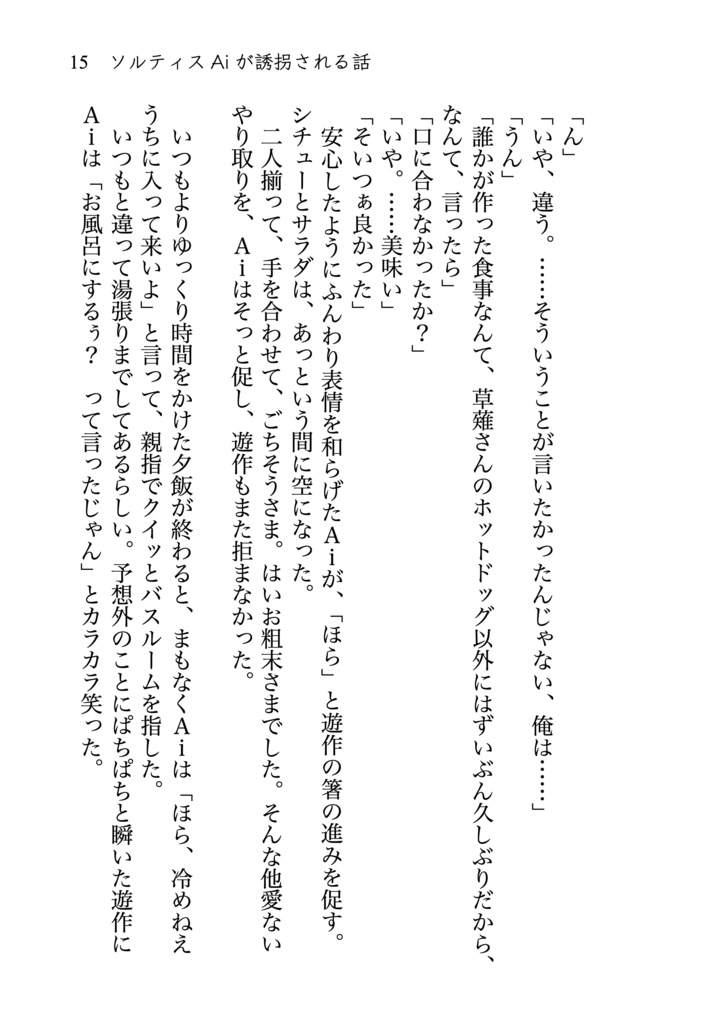 15 ソルティスAiが誘拐される話
「ん」
「いや、違う。……そういうことが言いたかったんじゃない、俺は……」
「うん」
「誰かが作った食事なんて、草薙さんのホットドッグ以外にはずいぶん久しぶりだから、
なんて、言ったら」
「口に合わなかったか？」
「いや。……美味い」
「そいつぁ良かった」
　安心したようにふんわり表情を和らげたＡｉが、「ほら」と遊作の箸の進みを促す。
シチューとサラダは、あっという間に空になった。
　二人揃って、手を合わせて、ごちそうさま。はいお粗末さまでした。そんな他愛ない
やり取りを、Ａｉはそっと促し、遊作もまた拒まなかった。
　いつもよりゆっくり時間をかけた夕飯が終わると、まもなくＡｉは「ほら、冷めねえ
うちに入って来いよ」と言って、親指でクイッとバスルームを指した。
　いつもと違って湯張りまでしてあるらしい。予想外のことにぱちぱちと瞬いた遊作に
Ａｉは「お風呂にするぅ？　って言ったじゃん」とカラカラ笑った。